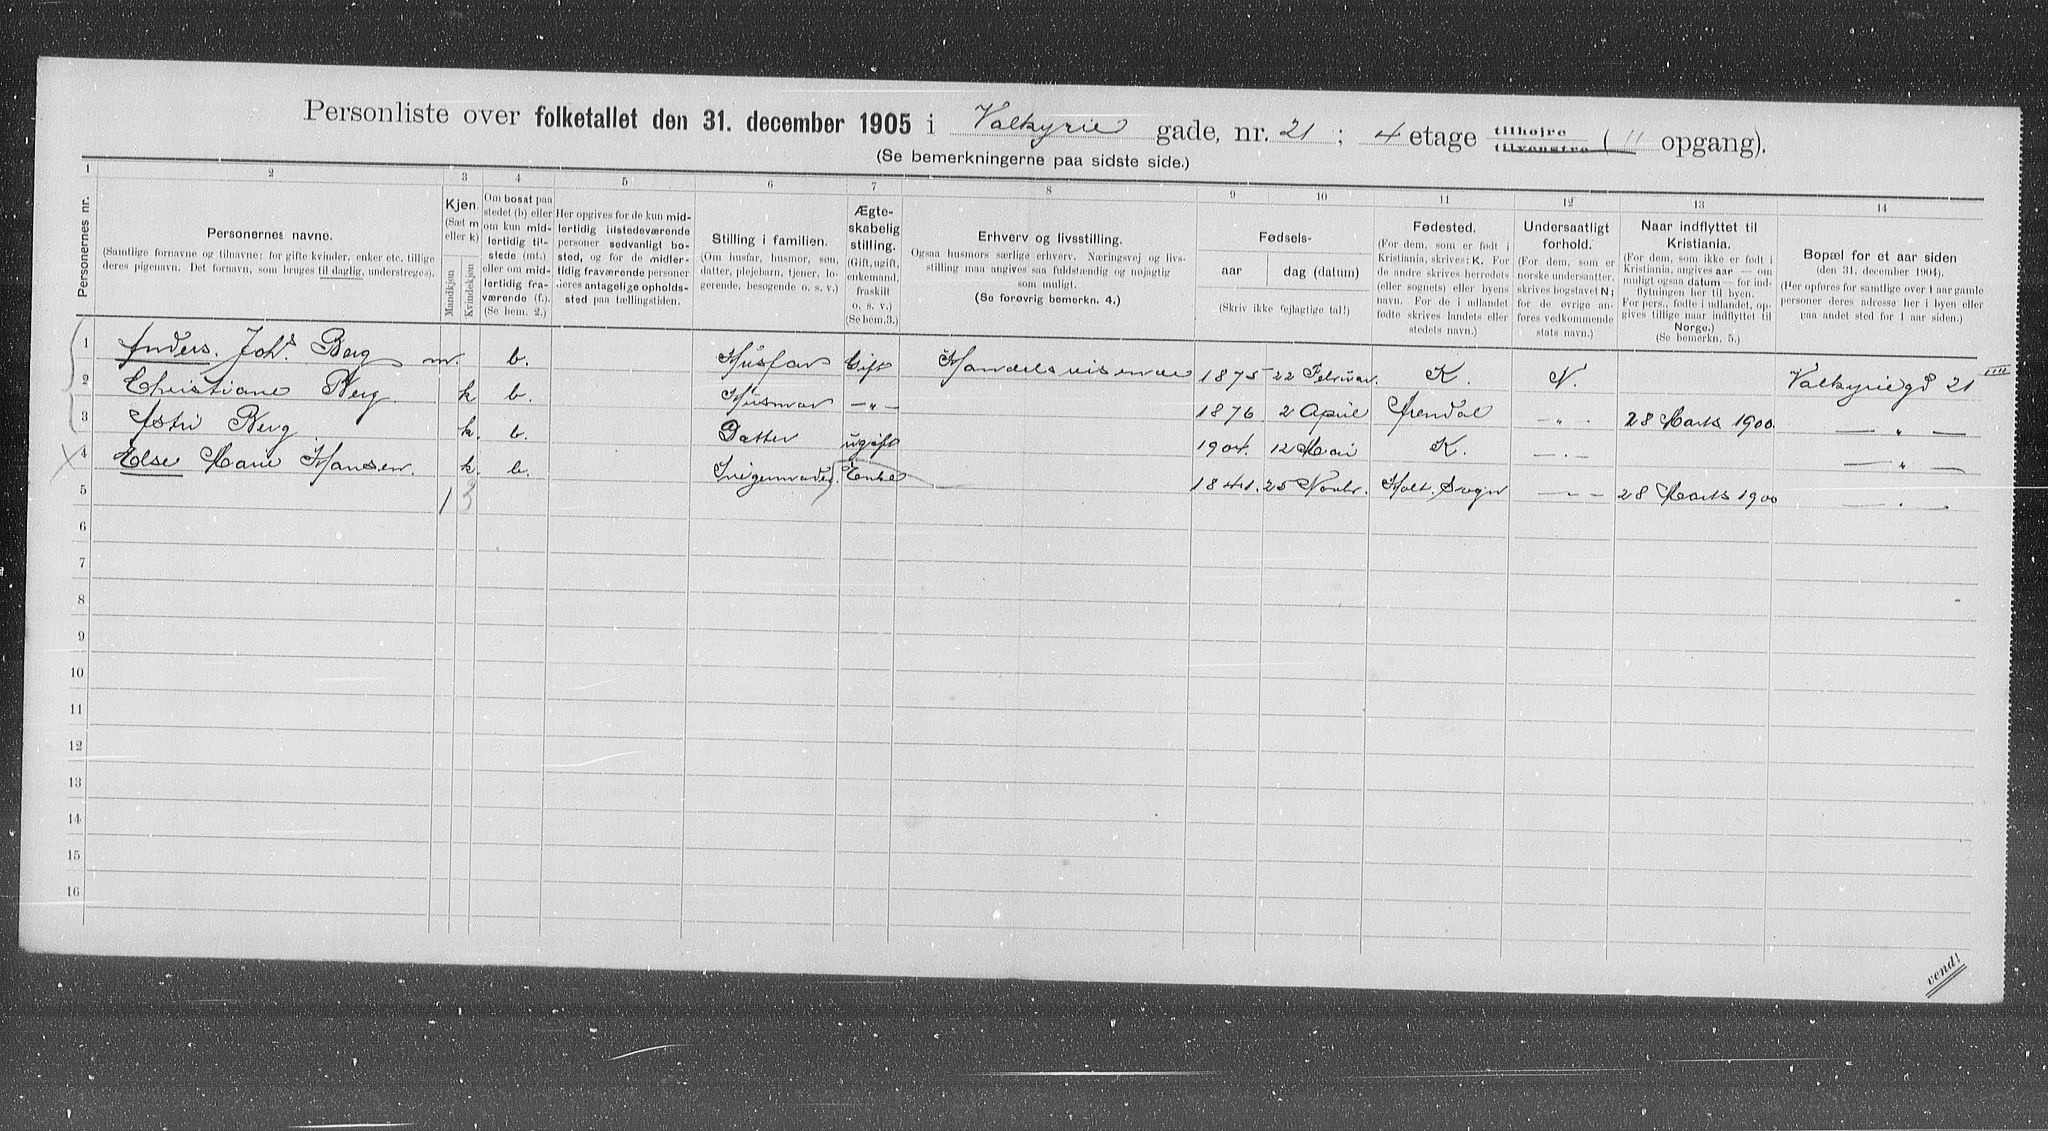 Personliste over folketallet den 31. december 1905 i Valkyrie gade, nr. 21 ; 4 etage tilhøjre tilvenstre ( II opgang).
(Se bemerkningerne paa sidste side.)
1 2 3 4 5 6 7 8 9 10 11 12 13 14
Personernes nr.
Personernes navne.
(Samtlige fornavne og tilnavne; for gifte kvinder, enker etc. tillige deres pigenavn. Det fornavn, som bruges til daglig, understreges).
Kjen.
(Sæt m eller k)
Mandkjøn
Kvindekjøn
Om bosat paa stedet (b) eller om kun midlertidig tilstede (mt.) eller om midlertidig fraværende (f.). (Se bem. 2.)
Her opgives for de kun midlertidig tilstedeværende personer sedvanligt bosted, og for de midlertidig fraværende personer deres antagelige opholdssted paa tællingstiden.
Stilling i familien.
(Om husfar, husmor, søn, datter, plejebarn, tjener, logerende, besøgende o. s. v.)
Ægteskabelig stilling.
(Gift, ugift, enkemand, fraskilt o. s. v.)
(Se bem. 3.)
Erhverv og livsstilling.
Ogsaa husmors særlige erhverv. Næringsvej og livsstilling maa angives saa fuldstændig og nøjagtig som muligt.
(Se forøvrig bemerkn. 4.)
Fødsels-
aar
dag (datum)
(Skriv ikke fejlagtige tal!)
Fødested.
(For dem, som er født i Kristiania, skrives: K. For de andre skrives herredets (eller sognets) eller byens navn. For de i udlandet fødte skrives landets eller stedets navn.)
Undersaatligt forhold.
(For dem, som er norske undersaatter, skrives bogstavet N; for de øvrige anføres vedkommende stats navn.)
Naar indflyttet til Kristiania.
(For dem, som ikke er født i Kristiania, angives aar — om muligt ogsaa datum — for indflytningen her til byen. For pers., fødte i udlandet, opgives tillige naar indflyttet til Norge.)
(Se bemerkn. 5.)
Bopæl for et aar siden
(den 31. december 1904).
(Her opføres for samtlige over 1 aar gamle personer deres adresse her i byen eller paa andet sted for 1 aar siden.)
1 Anders. Joh. Berg m. b. Husfar Gift Handelsreisende 1875 22 Februar. K. N. Valkyriegd 21 IIII
2 Christiane Berg k b. Husmor —"— 1876 2 April Arendal —"— 28 Marts 1900. —"—
3 Astri Berg k. b. Datter ugift 1904. 12 Mai K. —"— —"—
4 Else Marie Hansen. k. b. Svigermoder Enke 1841. 25 Novbr. Holt. Sogn —"— 28 Marts 1900 —"—
5 1 3
6
7
8
9
10
11
12
13
14
15
16
vend!